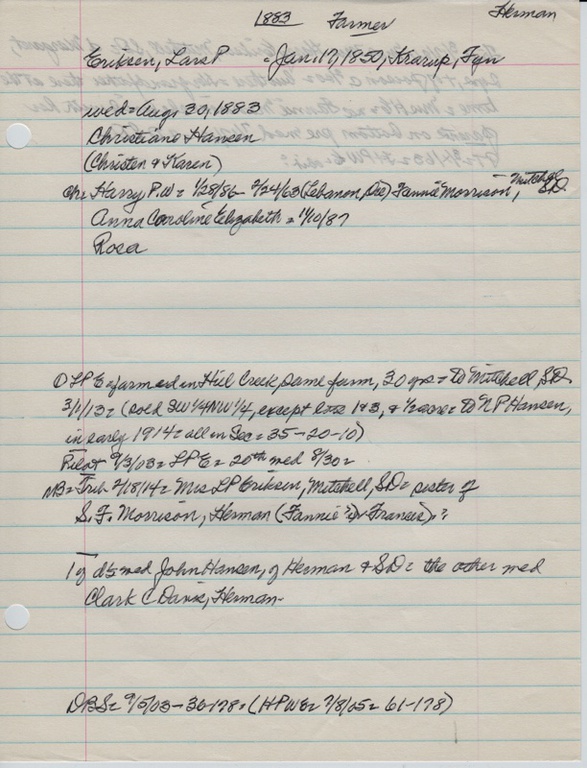 1883 Farmer Herman
Eriksen, Lars P = Jan. 17, 1850, Krarup, Fyn
wed = Aug. 30, 1883
Christiane Hansen
(Christen & Karen)
chr Harry, P.W = 1/28/86 - 2/24/63 (Lebanon, Ore) Fannie Morrison, Mitchell, S.D.
Anna Caroline Elizabeth = 11/10/87
Rosa
O LP E = farmed on Hill Creek, same farm, 30 yrs = to Mitchell, S.D.
3/1/13 = (sold SW 1/4 NW 1/4, except lots 1 & 3, & 1/2 acre = to N P Hansen,
in early 1914 = all in Sec = 35-20-10)
Pilot 9/3/03 = LP E = 20th wed 8/30 =
NB = Trib 2/18/14 = Mrs LP Eriksen, Mitchell, S.D = sister of
S. F. Morrison, Herman (Fannie Francis) ?
1 of dts wed John Hansen, of Herman & S.D = the other wed
Clark C Davis, Herman -
DBS = 9/5/03 - 30-178 = (HPWE = 7/8/05 = 61-178)